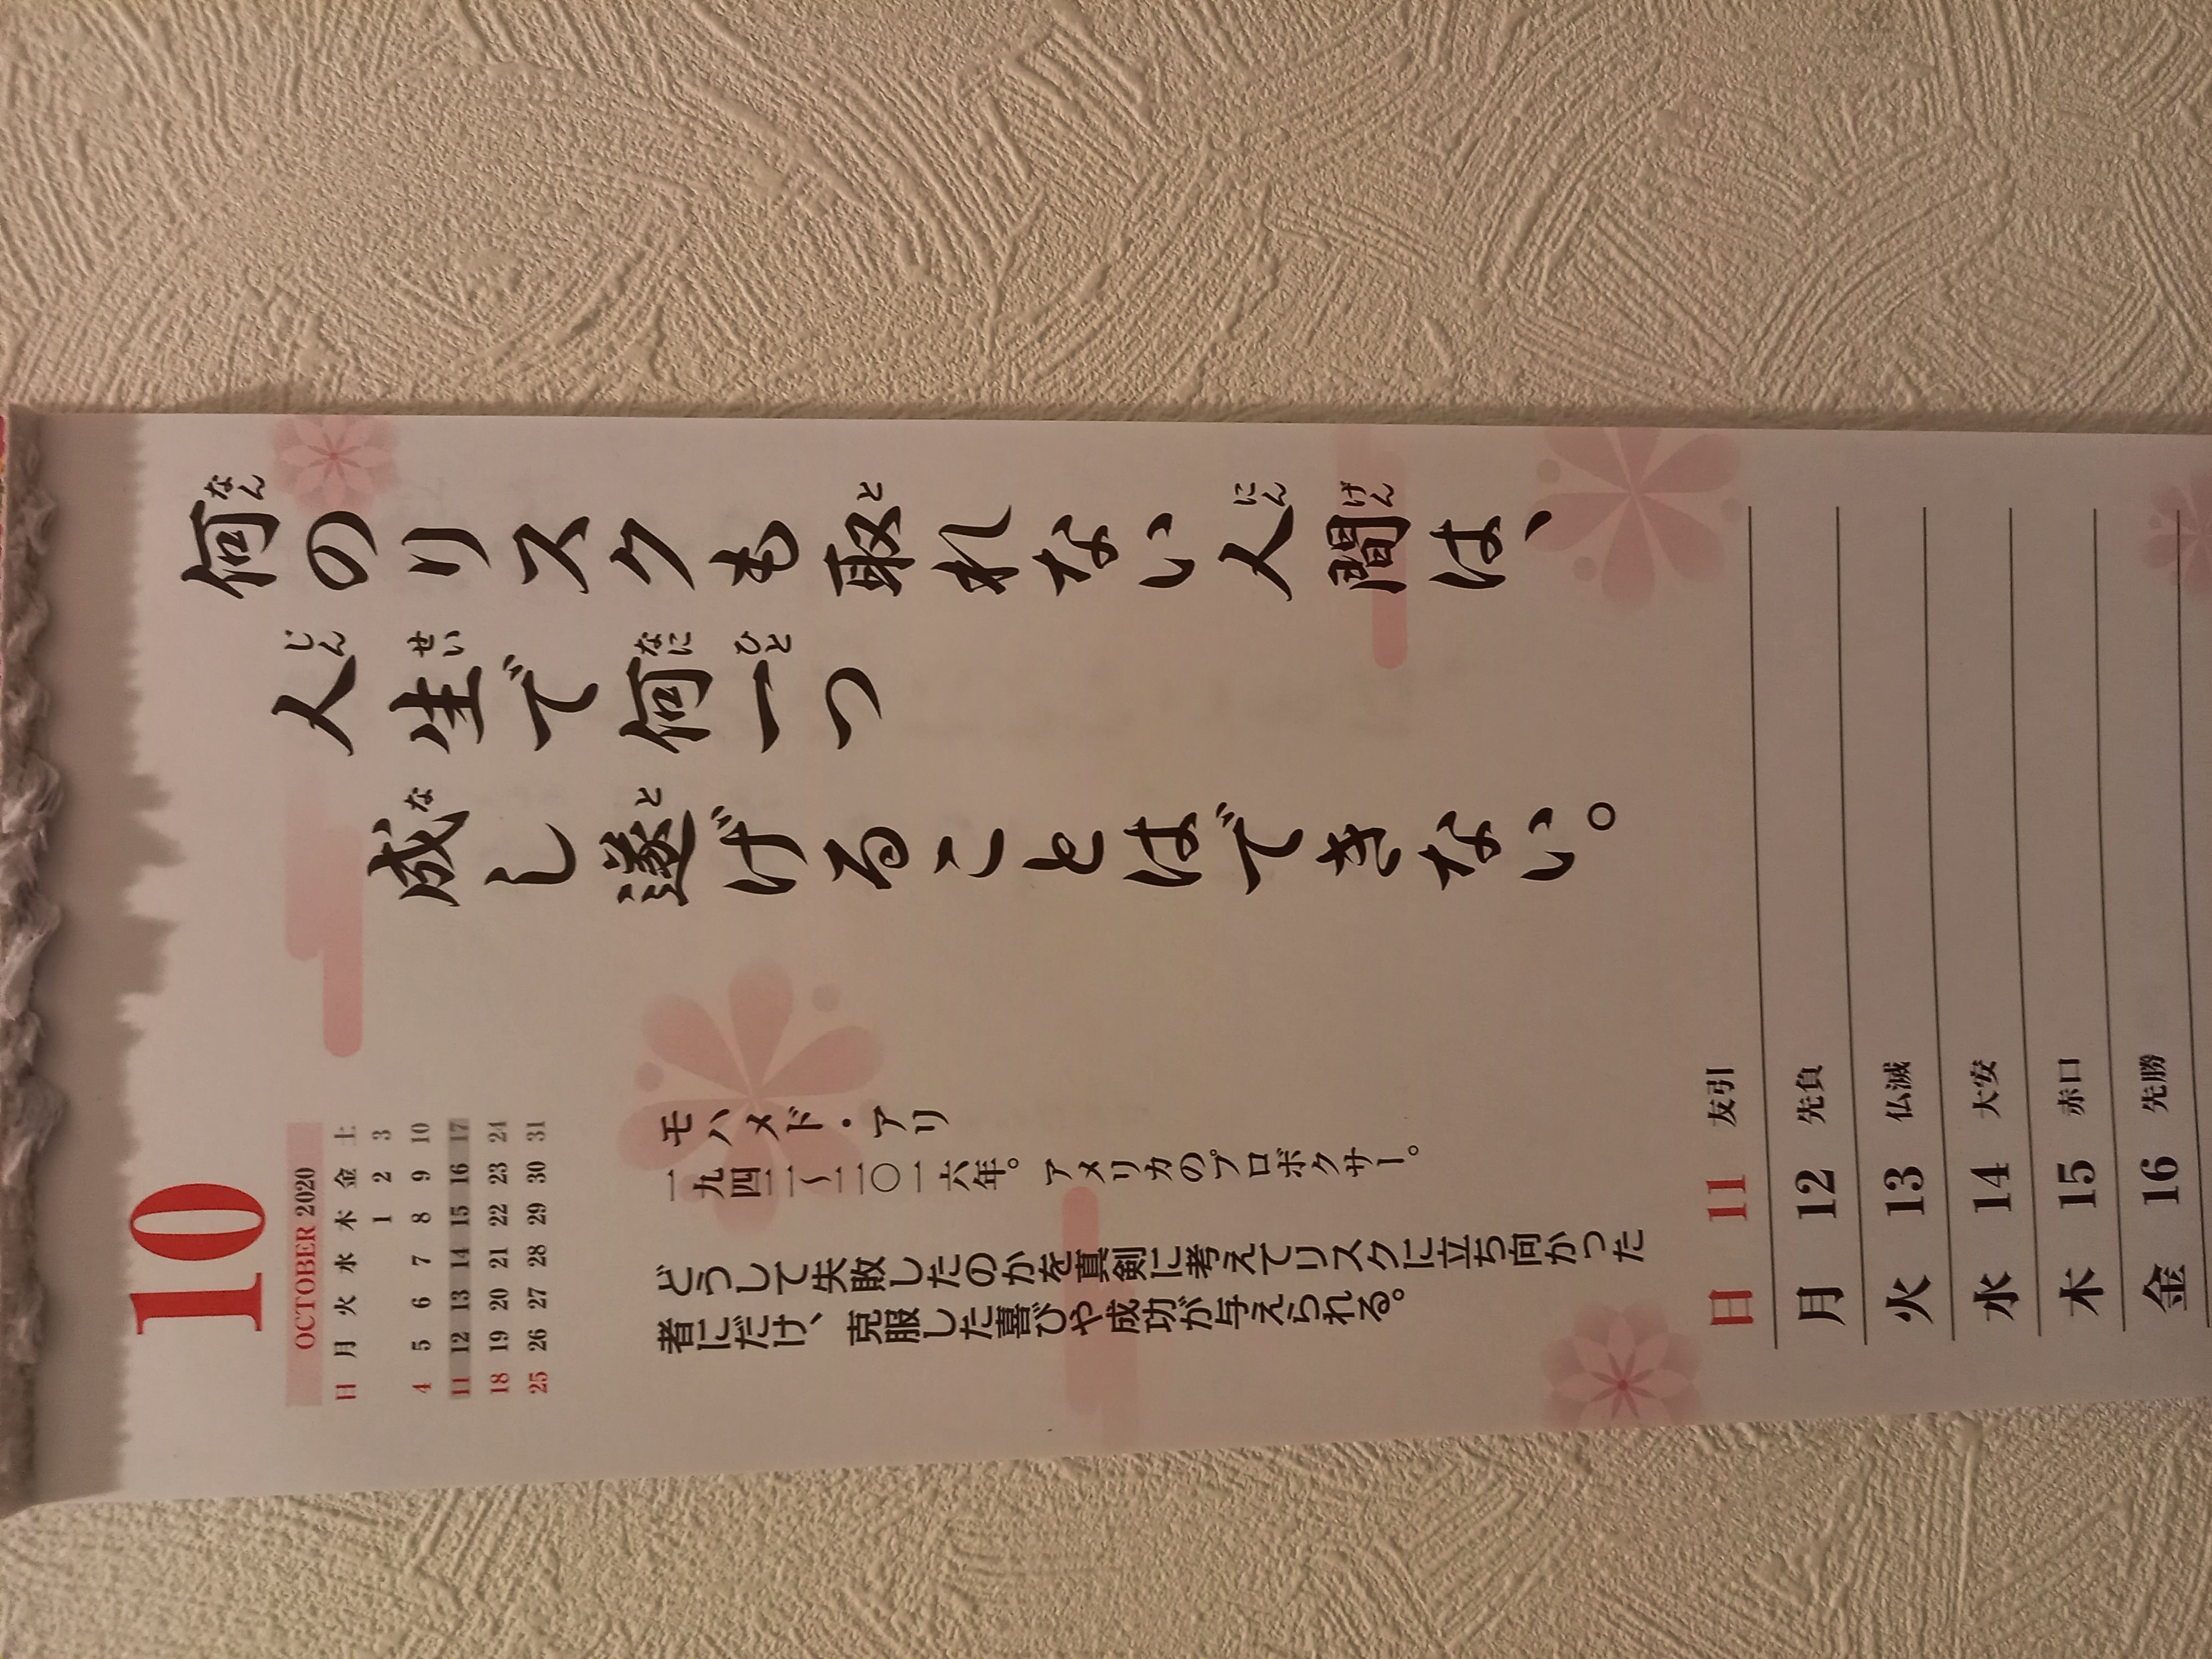 10
OCTOBER 2020
日 月 火 水 木 金 土
1 2 3
4 5 6 7 8 9 10
11 12 13 14 15 16 17
18 19 20 21 22 23 24
25 26 27 28 29 30 31
何のリスクも取れない人間は、
なん と にん げん
人生で何一つ
じん せい なに ひと
成し遂げることはできない。
な と
モハメド・アリ
一九四二〜二〇一六年。アメリカのプロボクサー。
どうして失敗したのかを真剣に考えてリスクに立ち向かった
者にだけ、克服した喜びや成功が与えられる。
日 11 友引
月 12 先負
火 13 仏滅
水 14 大安
木 15 赤口
金 16 先勝